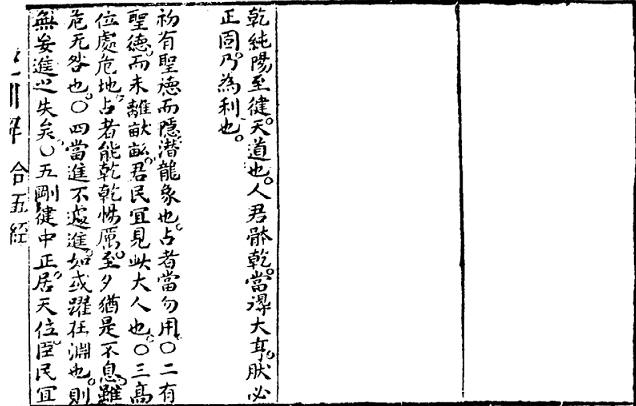 乾純陽至健。天道也。人君體乾。當得大耳。肰必
正固乃為利也。
初有聖德而隱潛龍象也。占者當勿用。○二有
聖德。而未離畎畝。君民宜見此大人也。○三髙
位處危地。占者能乾乾惕厲。至夕猶是不息。雖
危无咎也。○四當進不遽進。如或躍在淵也。則
無妄進之失矣。○五剛健中正。居天位。臣民宜
合五經